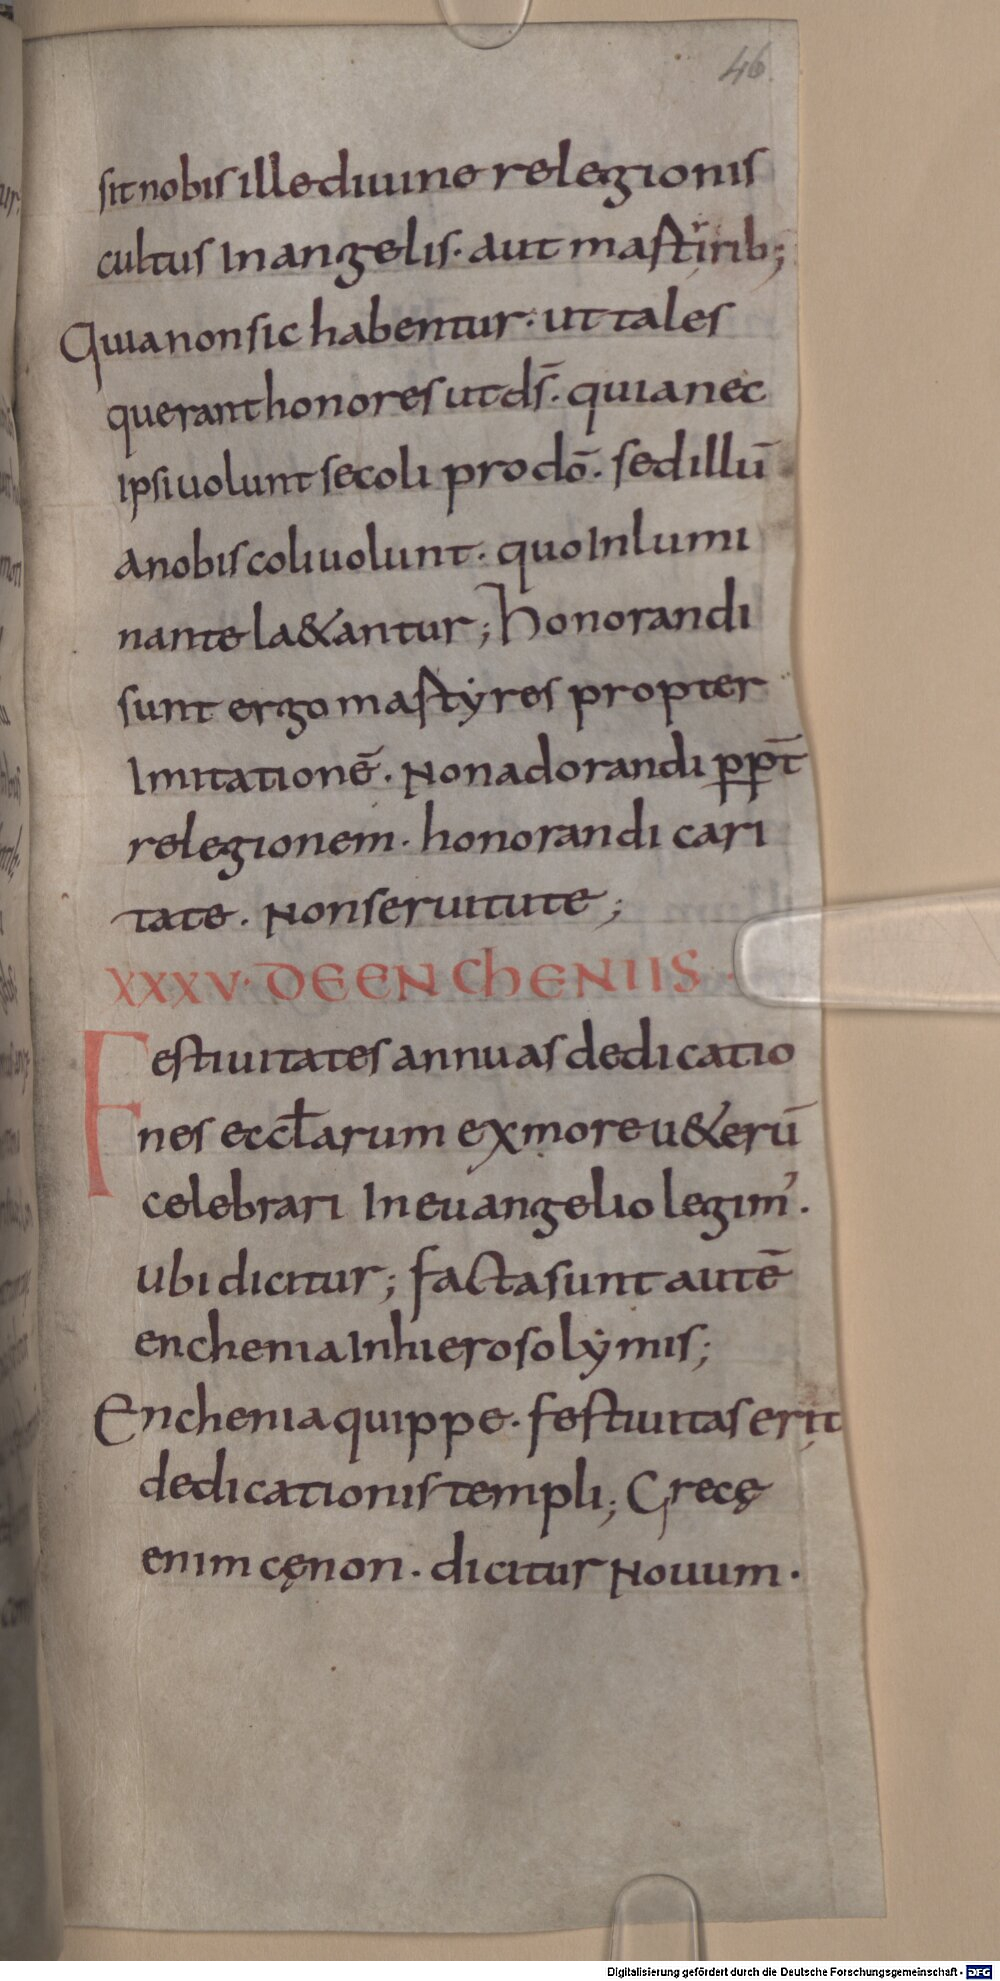 46.
sit nobis ille diuine relegionis
cultus In angelis· aut mastirib;
Quia non sic habentur· ut tales
querant honores ut ds̄· quia nec
ipsi uolunt se coli pro dō· sed illū
a nobis coli uolunt· quo Inlumi
nante la&antur; honorandi
sunt ergo mastyres propter
Imitationē· Non adorandi ꝓpt̄
relegionem· honorandi cari
tate· Non seruitute;
XXXV· DE ENCHENIIS·
Festiuitates annuas dedicatio
nes eccłarum ex more u&erū
celebrari In euangelio legim'·
ubi dicitur; facta sunt autē
enchenia In hierosolymis;
Enchenia quippe· festiuitas erit
dedicationis templi; Grecę
enim cęnon· dicitur Nouum·
Digitalisierung gefördert durch die Deutsche Forschungsgemeinschaft - DFG